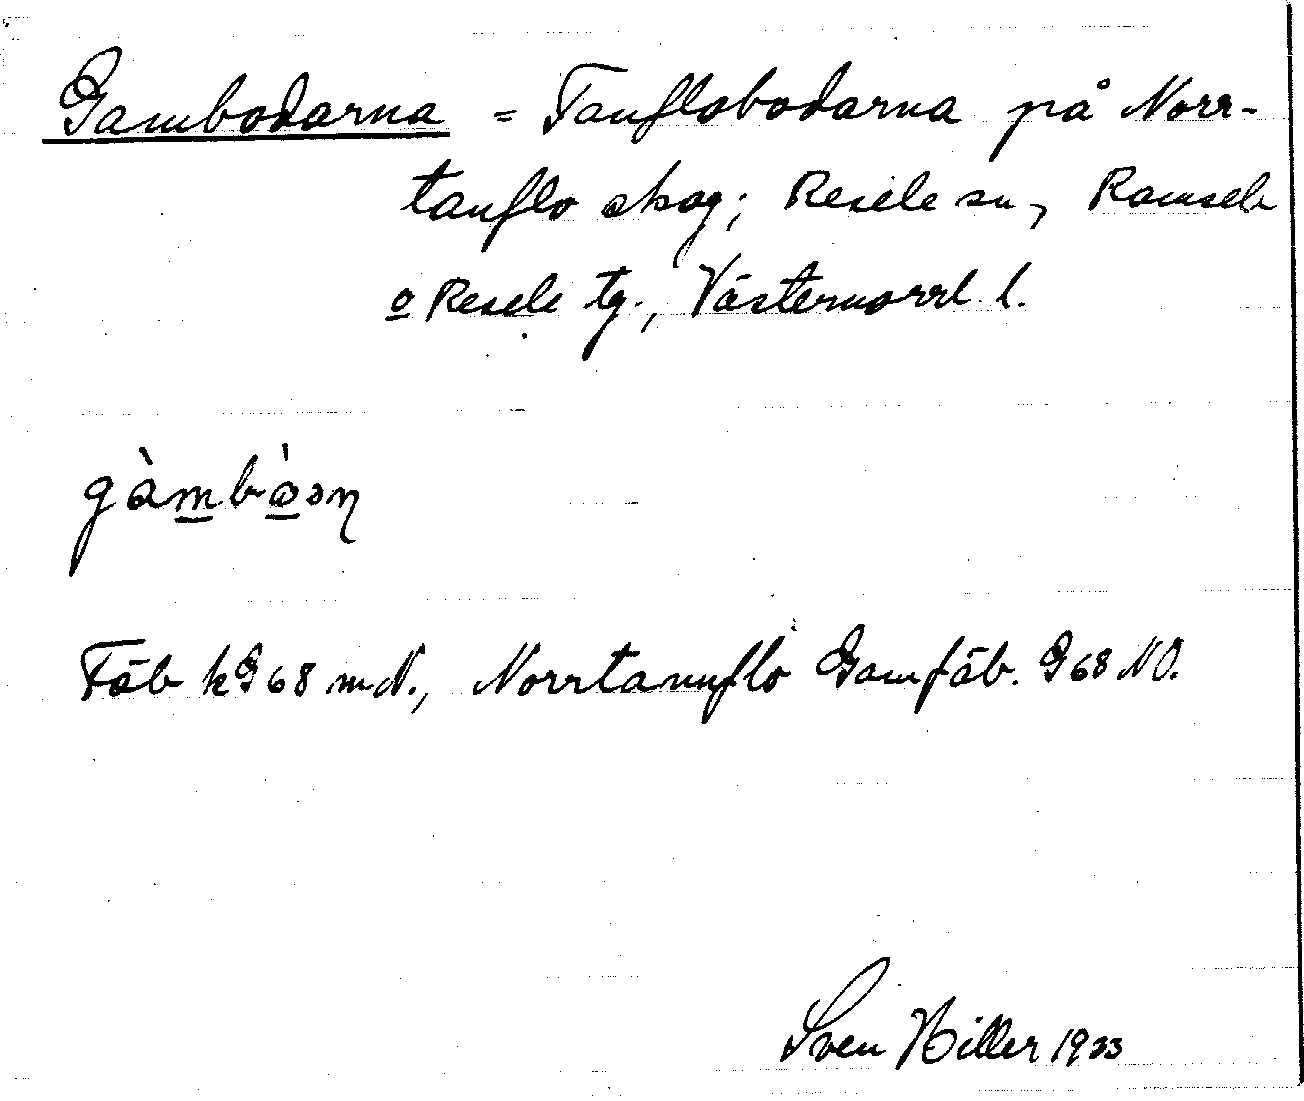 Gambodarna = Tanflobodarna på Norr-
tanflo skog; Resele sn, Ramsele
o Resele tg., Västernorrl. l.
gàmbòən
Fäb kG68 mN., Norrtannflo Gamfäb. G68 NO.
Sven Hiller 1933